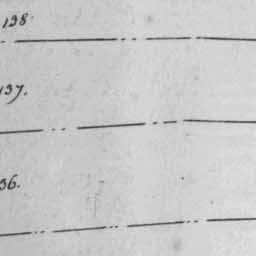 138
137.
36.